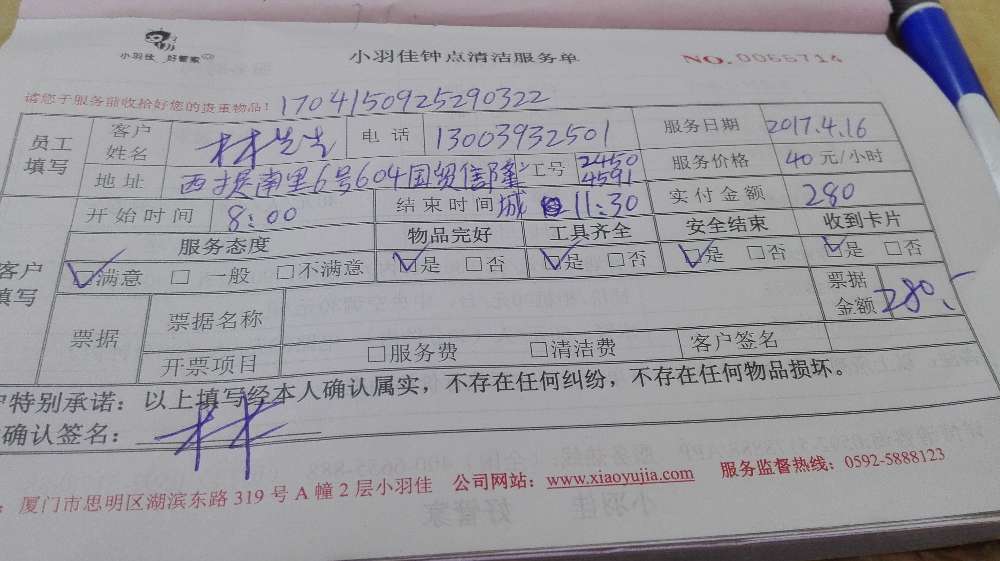 小羽佳 好管家
小羽佳钟点清洁服务单
NO.0066714
请您于服务前收拾好您的贵重物品!
1704150925290322
员工填写 客户姓名 林先生 电话 13003932501 服务日期 2017.4.16
地址 西堤南里6号604国贸信隆城 工号 2450 4591 服务价格 40元/小时
开始时间 8:00 结束时间 11:30 实付金额 280
客户填写 服务态度 物品完好 工具齐全 安全结束 收到卡片
☑满意 □一般 □不满意 ☑是 □否 ☑是 □否 ☑是 □否 ☑是 □否
票据 票据名称 票据金额 280.-
开票项目 □服务费 □清洁费 客户签名
户特别承诺:以上填写经本人确认属实,不存在任何纠纷,不存在任何物品损坏。
确认签名: 林
:厦门市思明区湖滨东路319号A幢2层小羽佳 公司网站:www.xiaoyujia.com 服务监督热线:0592-5888123